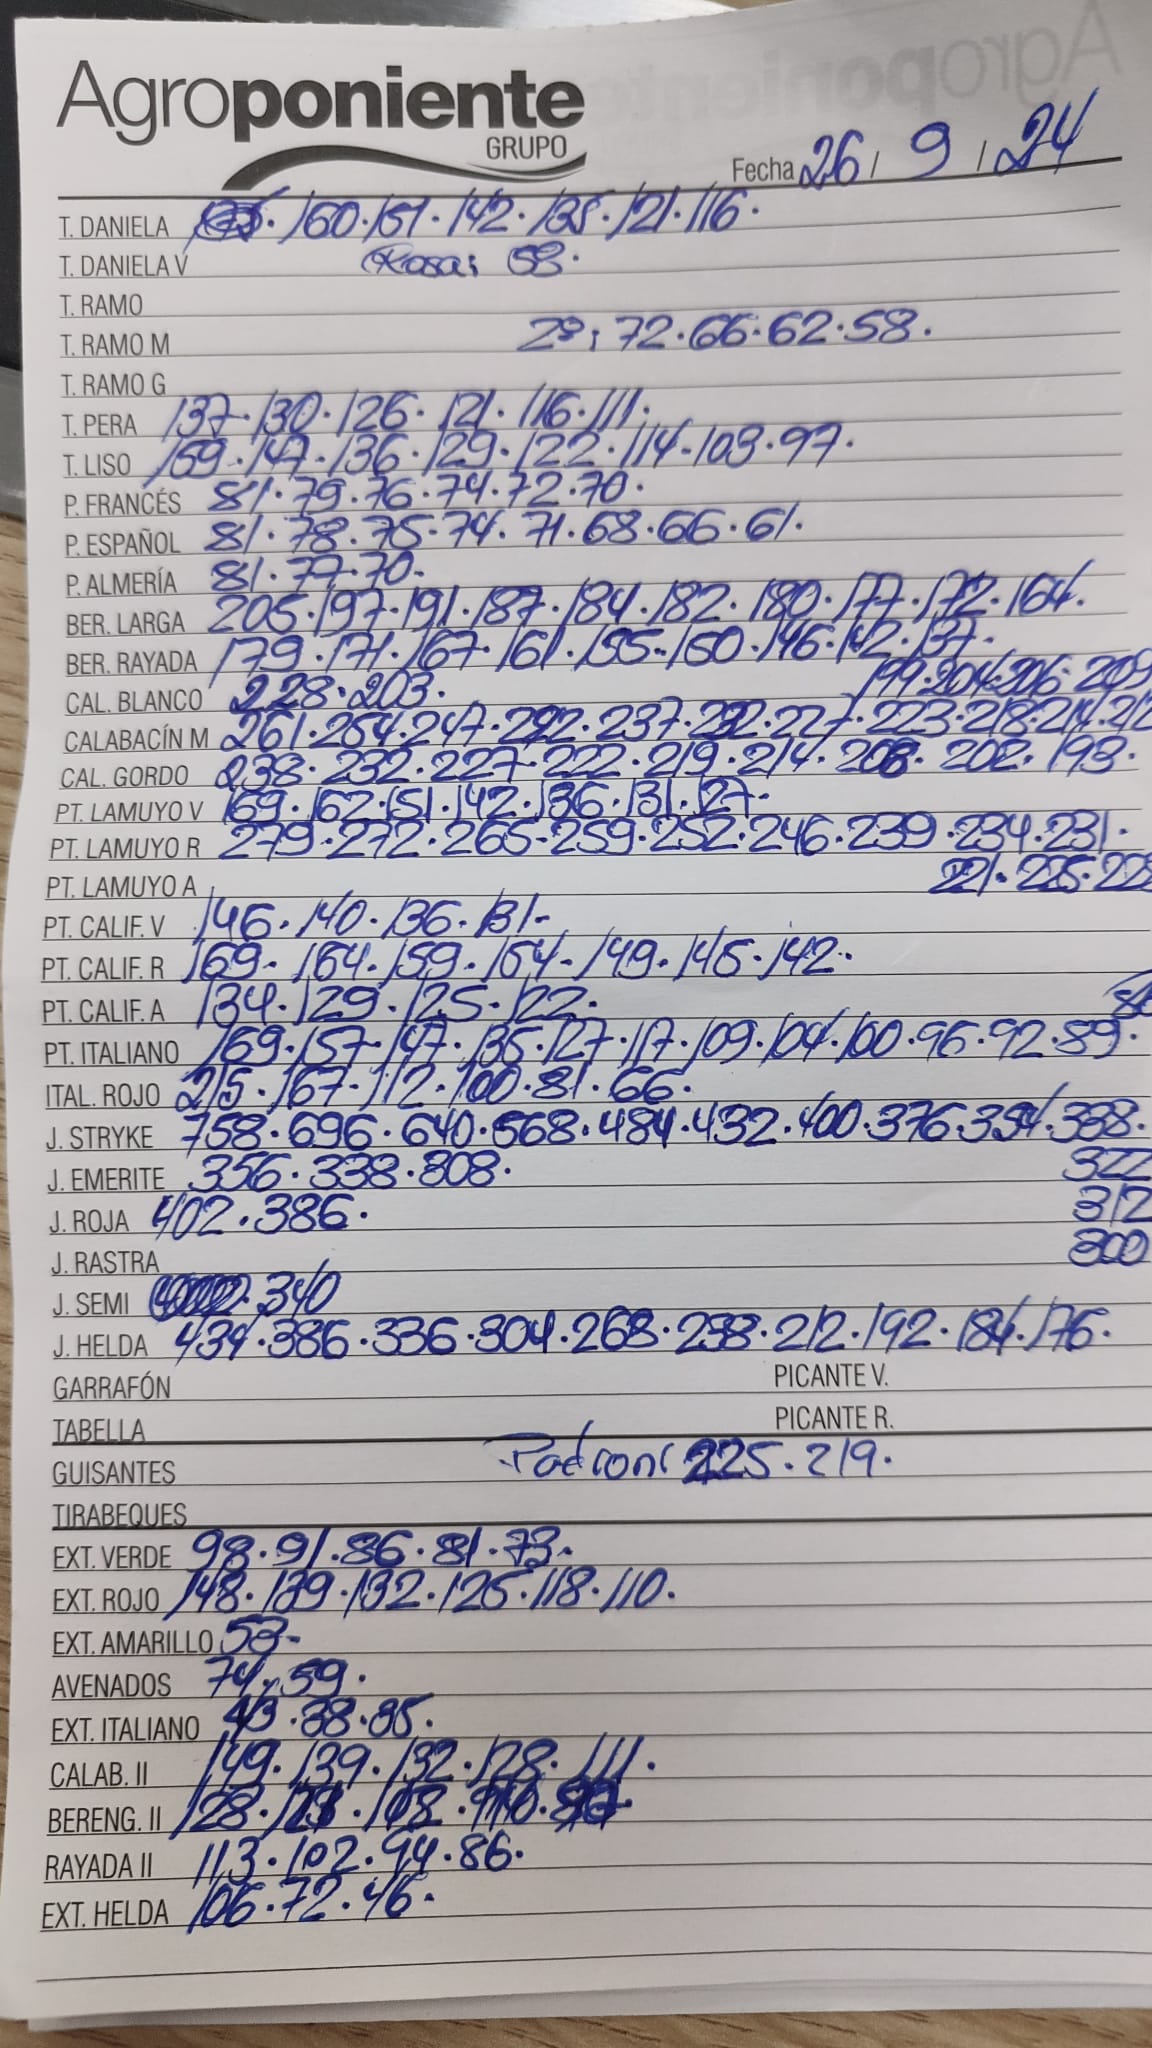 Agroponiente
GRUPO
Fecha 26 / 9 / 24
T. DANIELA 160.151.142.135.121.116.
T. DANIELA V Rosa: 58.
T. RAMO
T. RAMO M 2ª: 72.66.62.58.
T. RAMO G
T. PERA 137.130.126.121.116.111.
T. LISO 159.147.136.129.122.114.103.97.
P. FRANCÉS 81.79.76.74.72.70.
P. ESPAÑOL 81.78.75.74.71.68.66.61.
P. ALMERÍA 81.77.70.
BER. LARGA 205.197.191.187.184.182.180.177.172.164.
BER. RAYADA 179.171.167.161.155.150.146.142.137.
CAL. BLANCO 228.203. 199.204.206.209
CALABACÍN M 261.254.247.242.237.232.227.223.218.214.212
CAL. GORDO 238.232.227.222.219.214.208.202.193.
PT. LAMUYO V 169.162.151.142.136.131.127.
PT. LAMUYO R 279.272.265.259.252.246.239.234.231.
PT. LAMUYO A 221.225.228
PT. CALIF. V 146.140.136.131.
PT. CALIF. R 169.164.159.154.149.145.142.
PT. CALIF. A 134.129.125.122.
PT. ITALIANO 169.157.147.135.127.117.109.104.100.96.92.89.
ITAL. ROJO 215.167.112.100.81.66.
J. STRYKE 758.696.640.568.484.432.400.376.354.338.
J. EMERITE 356.338.308. 322
J. ROJA 402.386. 312
J. RASTRA 300
J. SEMI 340
J. HELDA 434.386.336.304.268.238.212.192.184.176.
GARRAFÓN PICANTE V.
TABELLA PICANTE R.
GUISANTES Padron: 225.219.
TIRABEQUES
EXT. VERDE 98.91.86.81.73.
EXT. ROJO 148.139.132.125.118.110.
EXT. AMARILLO 53.
AVENADOS 74.59.
EXT. ITALIANO 43.38.35.
CALAB. II 149.139.132.128.111.
BERENG. II 128.
RAYADA II 113.102.94.86.
EXT. HELDA 106.72.46.